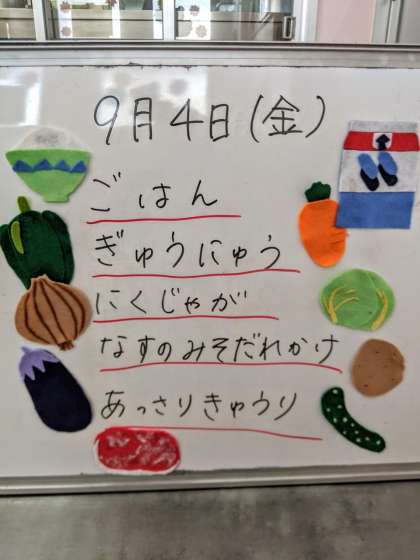 9月4日(金)
ごはん
ぎゅうにゅう
にくじゃが
なすのみそだれかけ
あっさりきゅうり